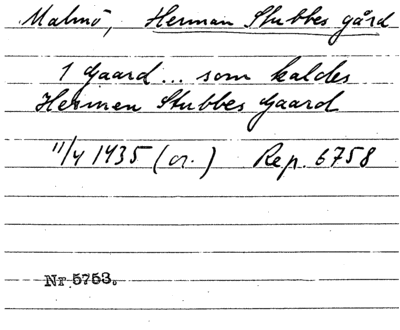 Malmö, Herman Stubbes gård
1 Gaard... som kaldes
Hermen Stubbes Gaard
11/4 1435 (or.) Rep. 6758
Nr 5753.